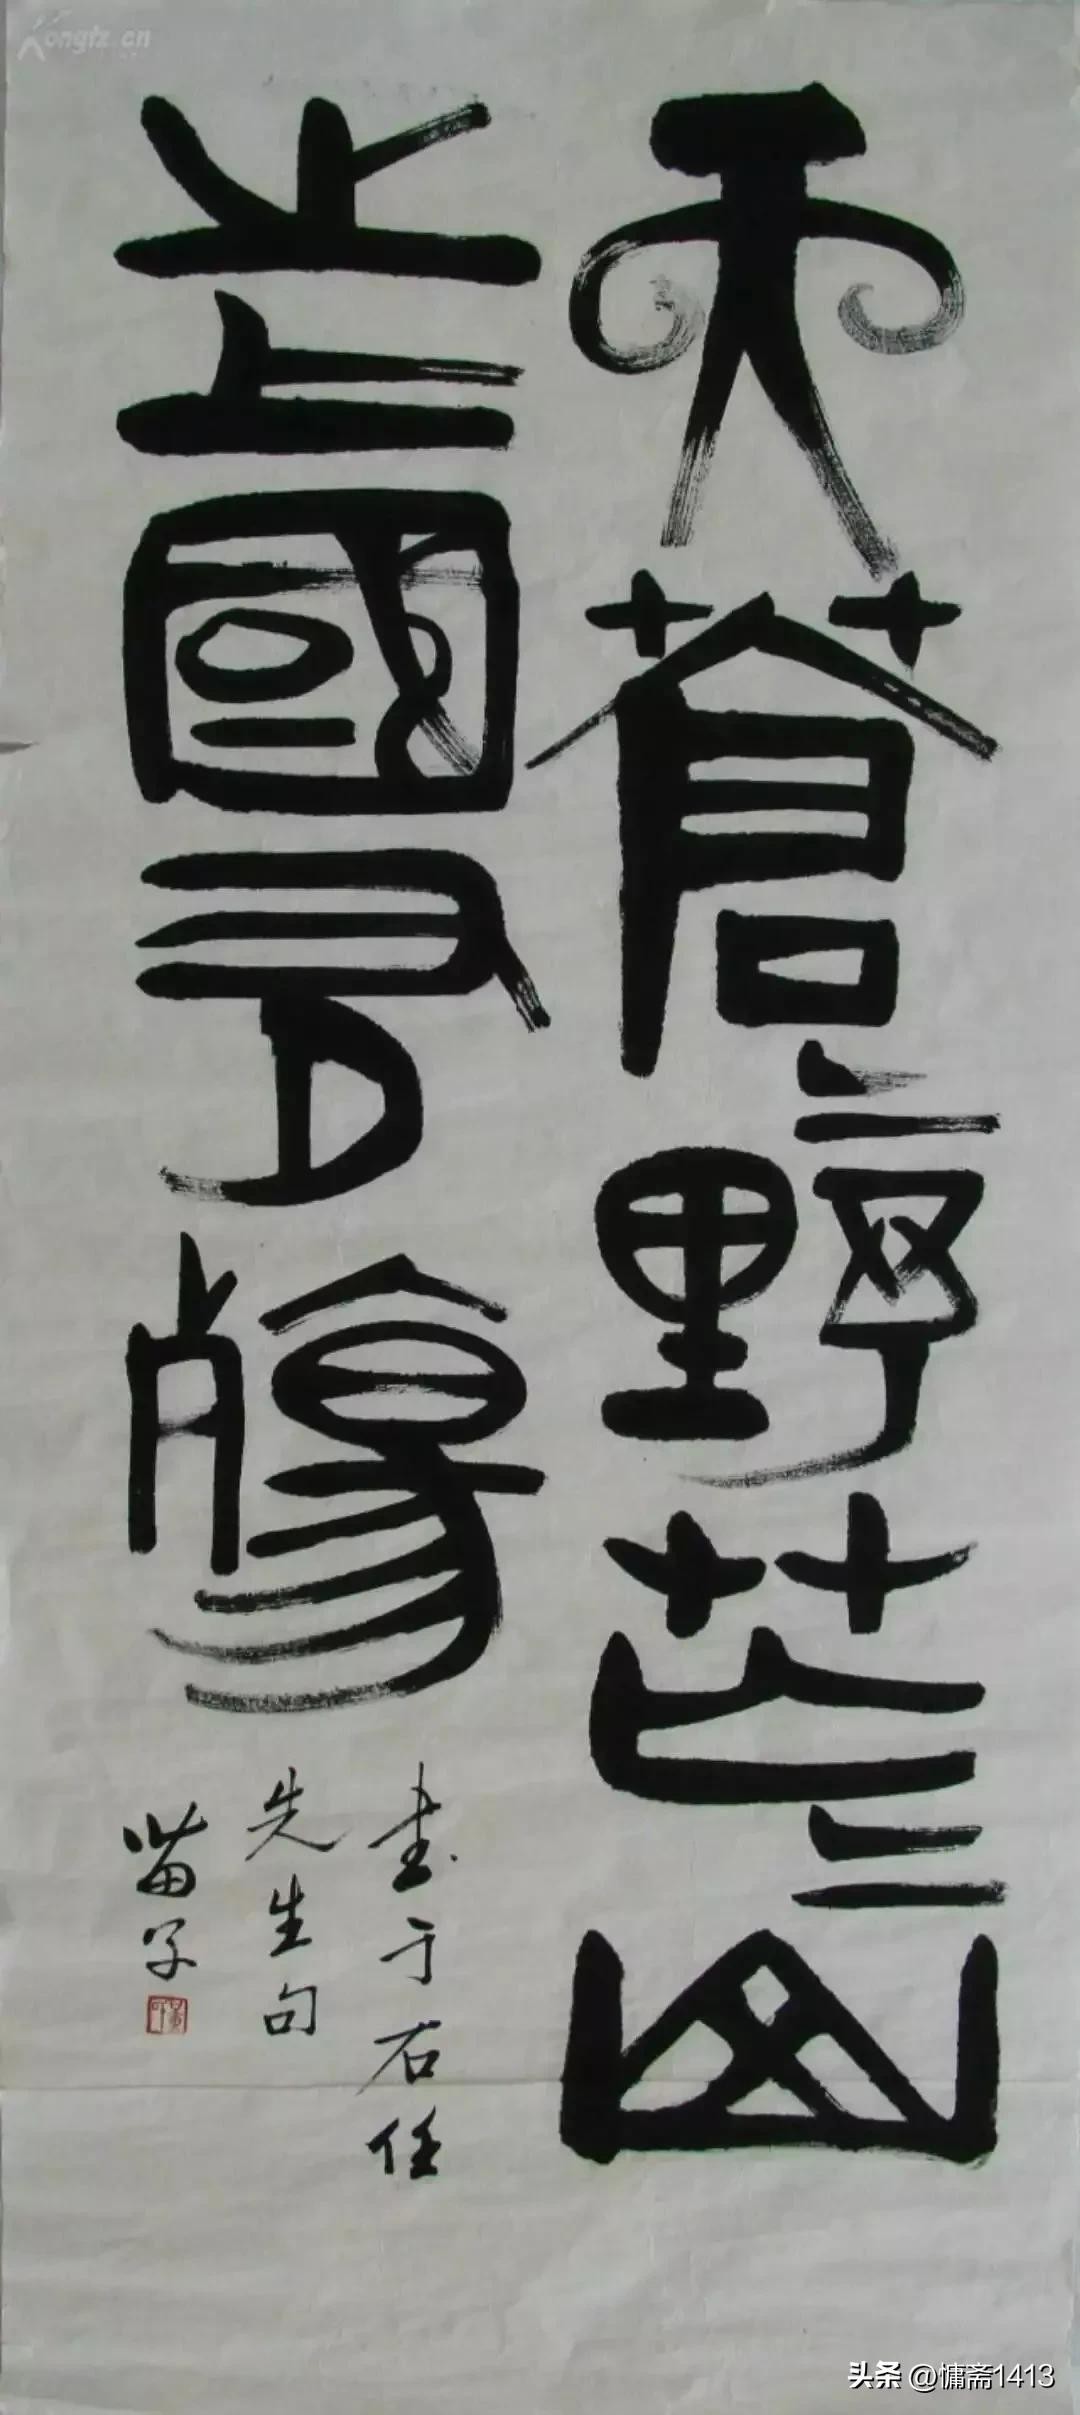 天蒼=野茫=山
之上國有殤
書于右任
先生句
苗子
Kongfz.cn
头条 @慵斋1413